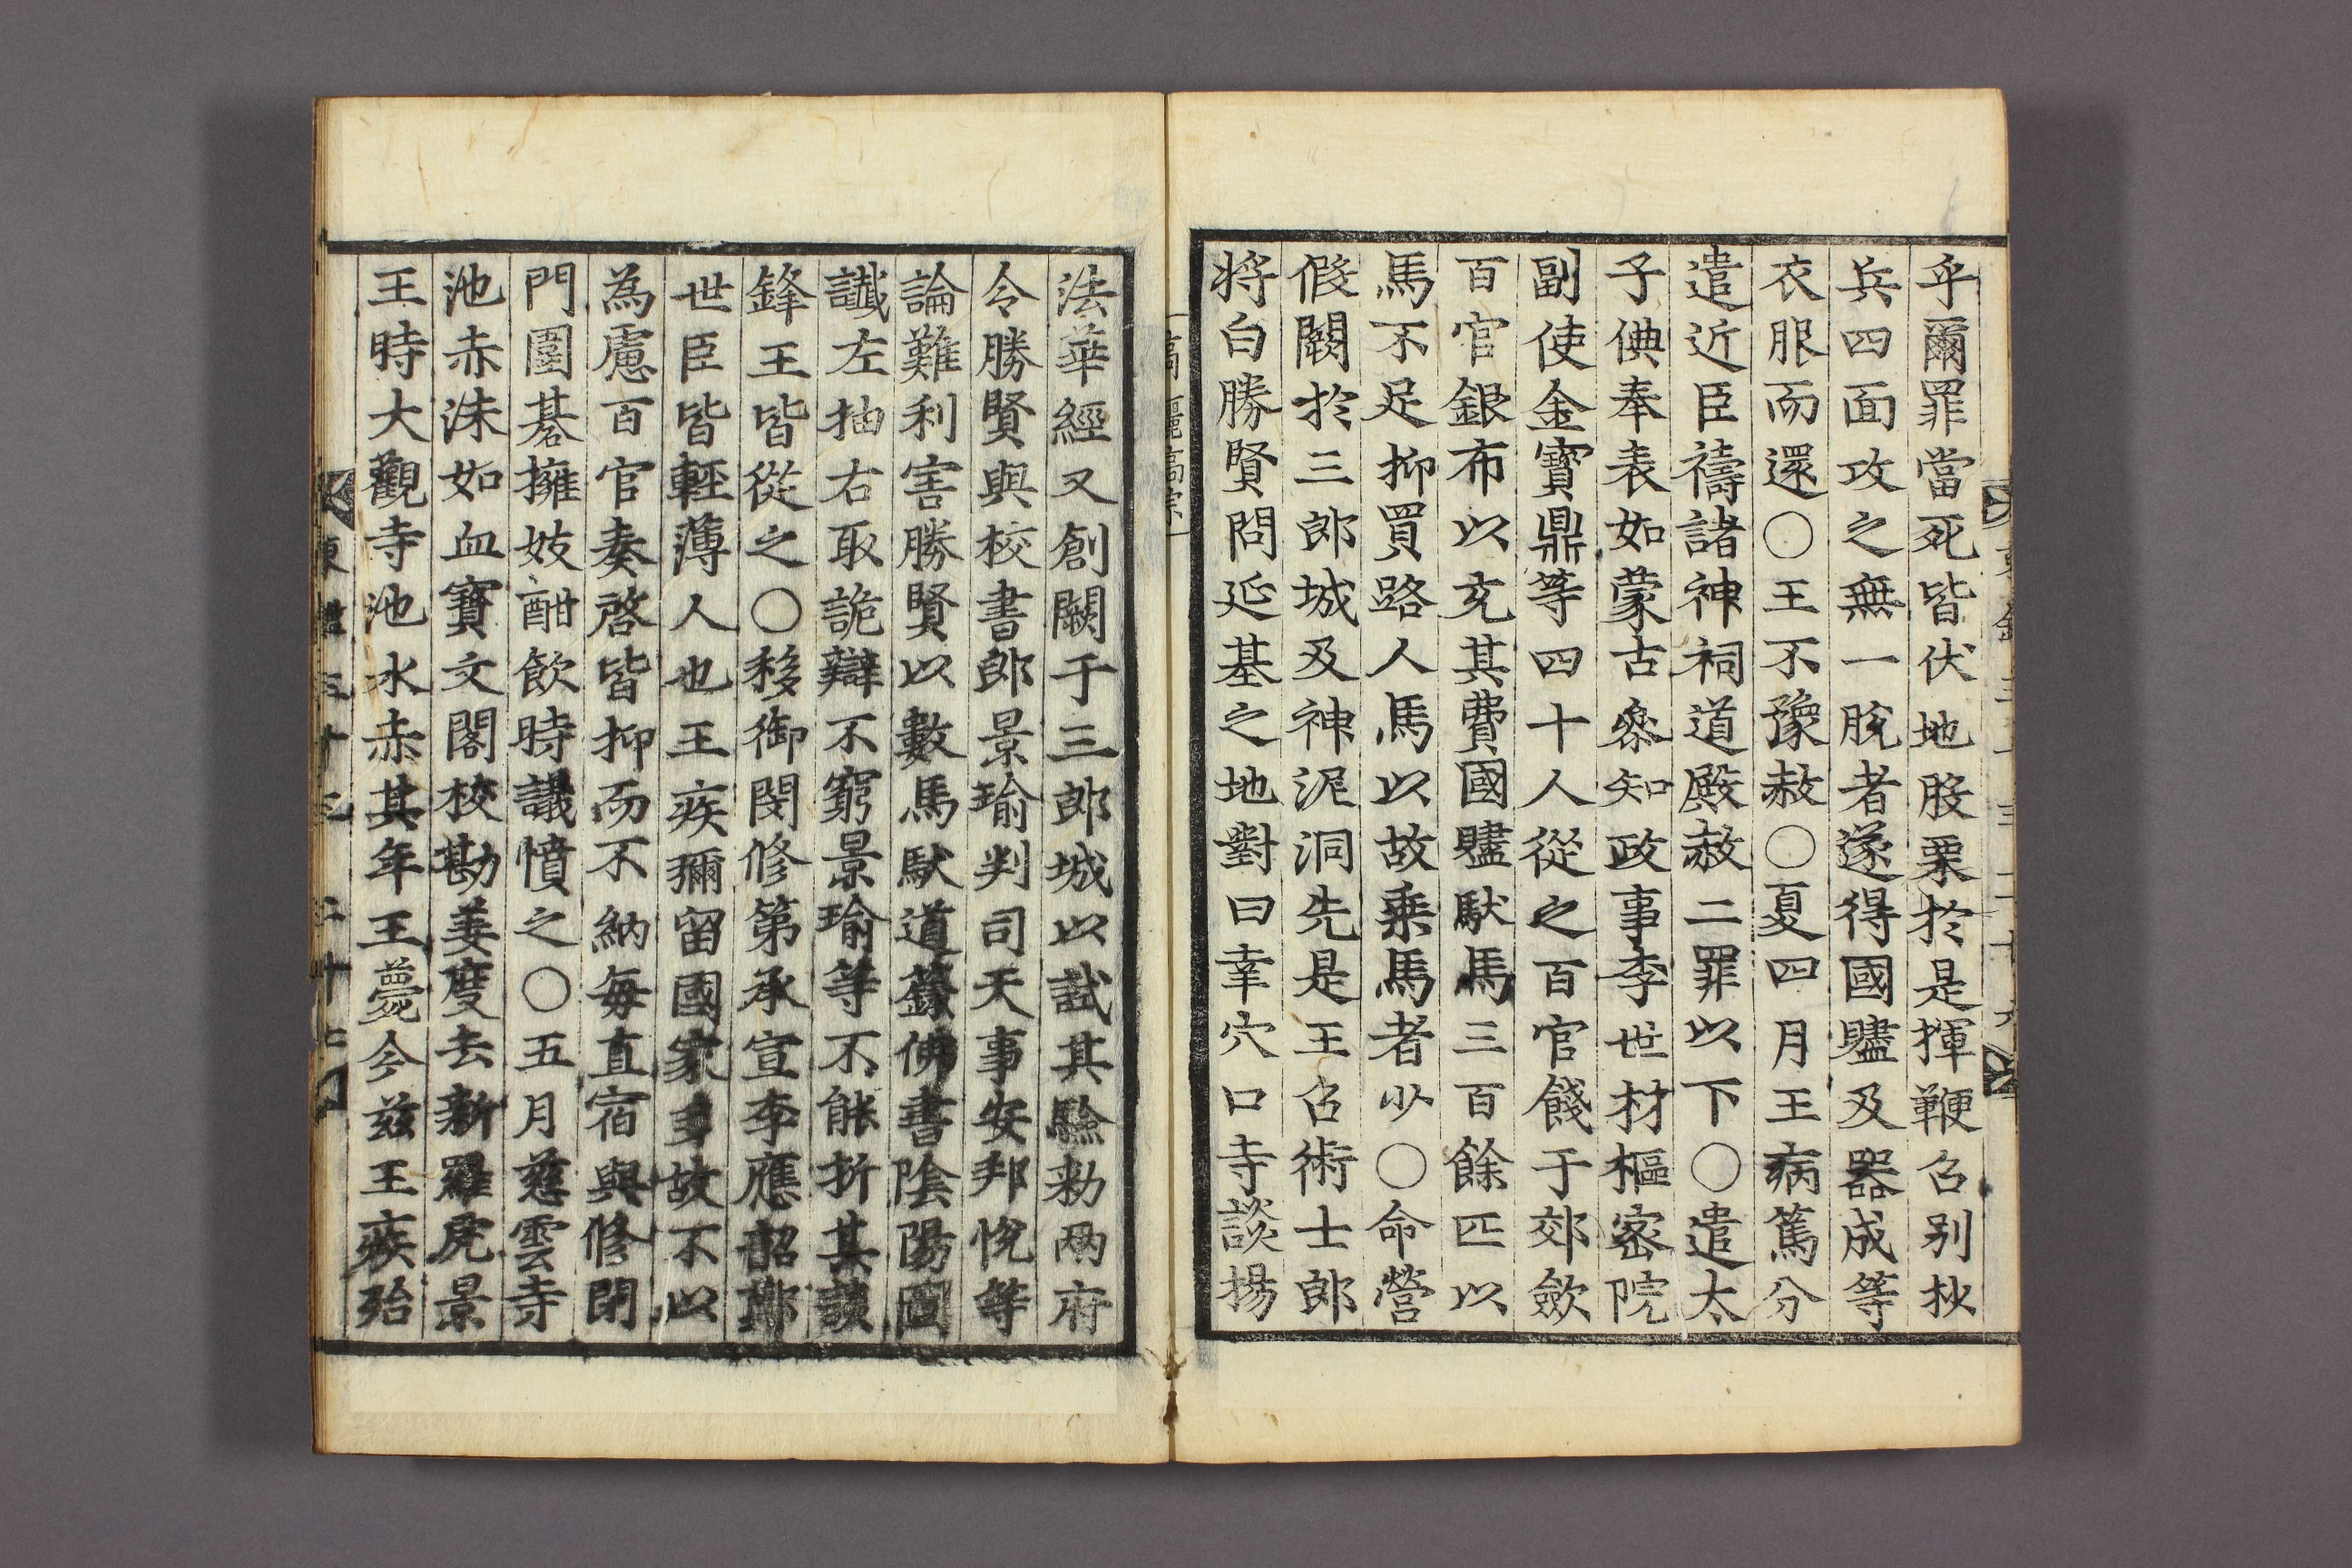 乎爾罪當死皆伏地股栗於是揮鞭召別抄
兵四面攻之無一脫者遂得國贐及器成等
衣服而還○王不豫赦○夏四月王病篤分
遣近臣禱諸神祠道殿赦二罪以下○遣太
子倎奉表如蒙古叅知政事李世材樞密院
副使金寶鼎等四十人從之百官餞于郊歛
百官銀布以充其費國贐馱馬三百餘匹以
馬不足抑買路人馬以故乘馬者少○命營
假闕於三郎城及神泥洞先是王召術士郎
將白勝賢問延基之地對曰幸穴口寺談揚
高麗高宗
法華經又創闕于三郎城以試其驗勑兩府
令勝賢與校書郎景瑜判司天事安邦悅等
論難利害勝賢以數馬馱道籙佛書陰陽圖
讖左抽右取詭辯不窮景瑜等不能折其談
鋒王皆從之○移御閔脩第承宣李應韶鄭
世臣皆輕薄人也王疾彌留國家多故不以
為慮百官奏啓皆抑而不納每直宿與修閉
門圍碁擁妓酣飮時議憤之○五月慈雲寺
池赤沬如血寶文閣校勘姜度去新羅虎景
王時大觀寺池水赤其年王薨今兹王疾殆